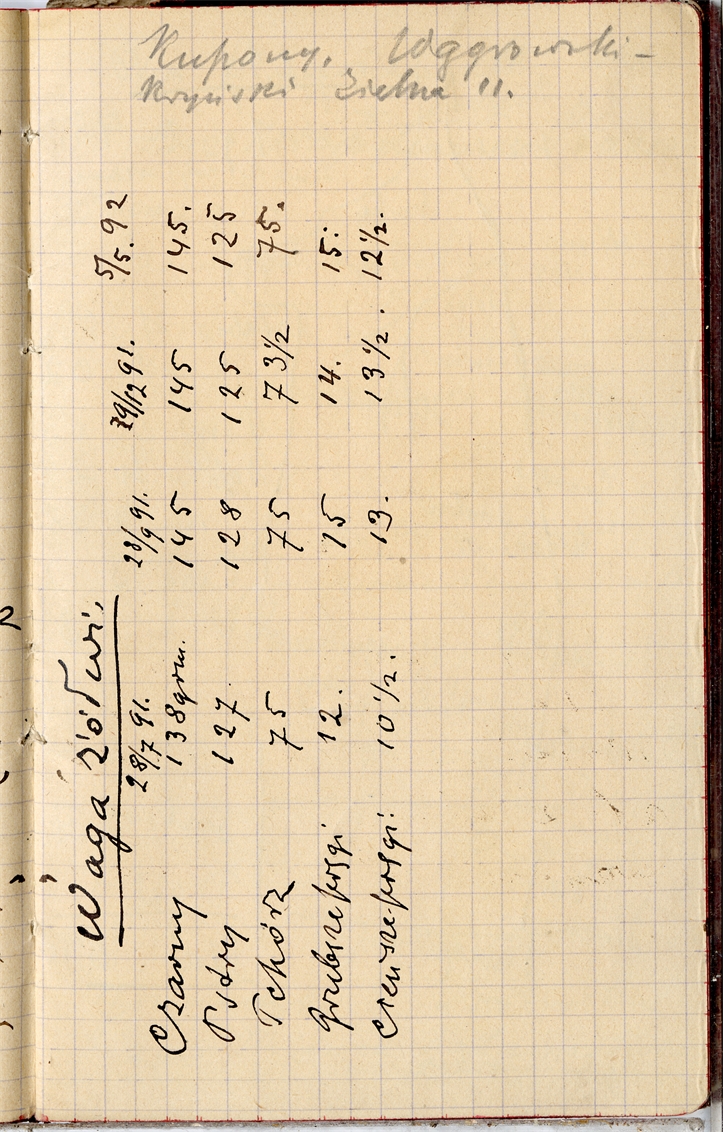 Kupony. Wągrowski-
Kryński Zielna 11.
Waga żółwi.
28/7 91. 28/9 91. 29/12 91. 5/5. 92
Czarny 138 grm. 145 145 145.
Pstry 127. 128 125 125
Tchórz 75 75 73 1/2 75.
grubsze 12. 15 14. 15.
cieńsze 10 1/2. 13. 13 1/2. 12 1/2.